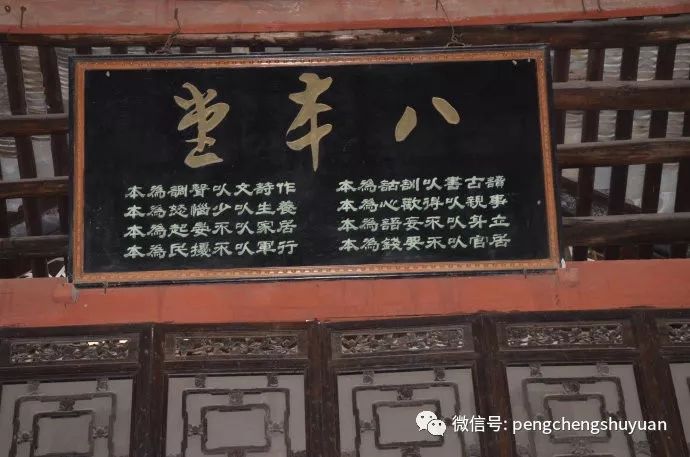 八本堂
讀古書以訓詁為本
作詩文以聲調為本
事親以得歡心為本
養生以少惱怒為本
立身以不妄語為本
居家以不晏起為本
居官以不要錢為本
行軍以不擾民為本
微信号: pengchengshuyuan